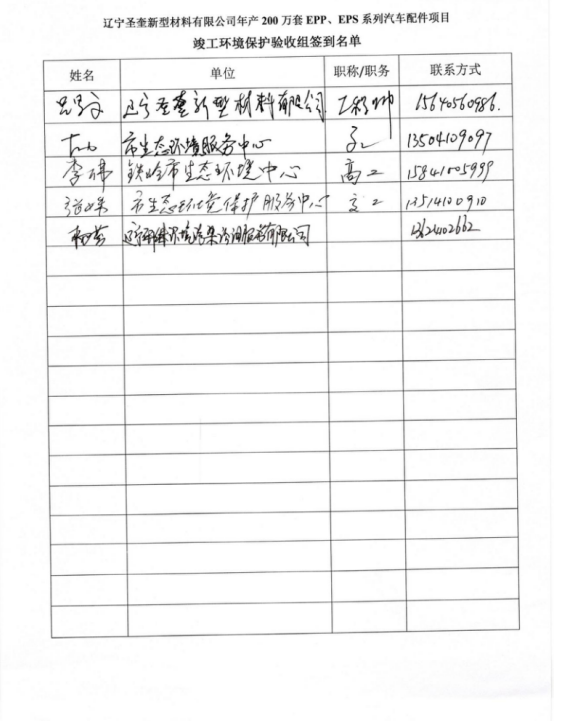 辽宁圣奎新型材料有限公司年产 200 万套 EPP、EPS 系列汽车配件项目
竣工环境保护验收组签到名单
姓名 单位 职称/职务 联系方式
辽宁圣奎新型材料有限公司 工程师 15640560986.
市生态环境服务中心 13504109097
李伟 铁岭市生态环境中心 高工 15841005999
市生态环境保护服务中心 高工 13514100910
杨芳 13624102662